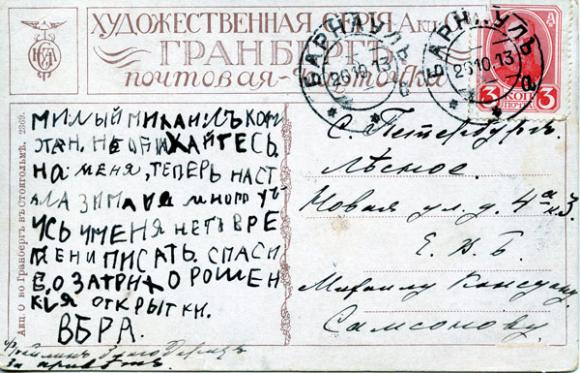 ХУДОЖЕСТВЕННАЯ СЕРІЯ Акц. О
ГРАНБЕРГЪ
почтовая карточка
БАРНАУЛЪ
26 10.13
БАРНАУЛЪ
26 10.13
3 КОП 3
Акц. О во Гранбергъ въ Стокгольмѣ. 2369.
МИЛЫЙ МИХАИЛЪ КОН
ТАН. НЕ ОБИЖАЙТЕСЬ
НА МЕНЯ, ТЕПЕРЬ НАСТ
АЛА ЗИМА Я МНОГО УЧ
УСЬ УМЕНЯ НЕТЪ ВРЕ
МЕНИ ПИСАТЬ. СПАСИ
БО ЗАТРИ ХОРОШЕН
КІЯ ОТКРЫТКИ.
ВѢРА.
за привѣтъ.
С. Петербургъ.
Лѣсное.
Новая ул. д. 4а к 3.
Е. В. Б.
Михаилу Конст.
Самсонову.